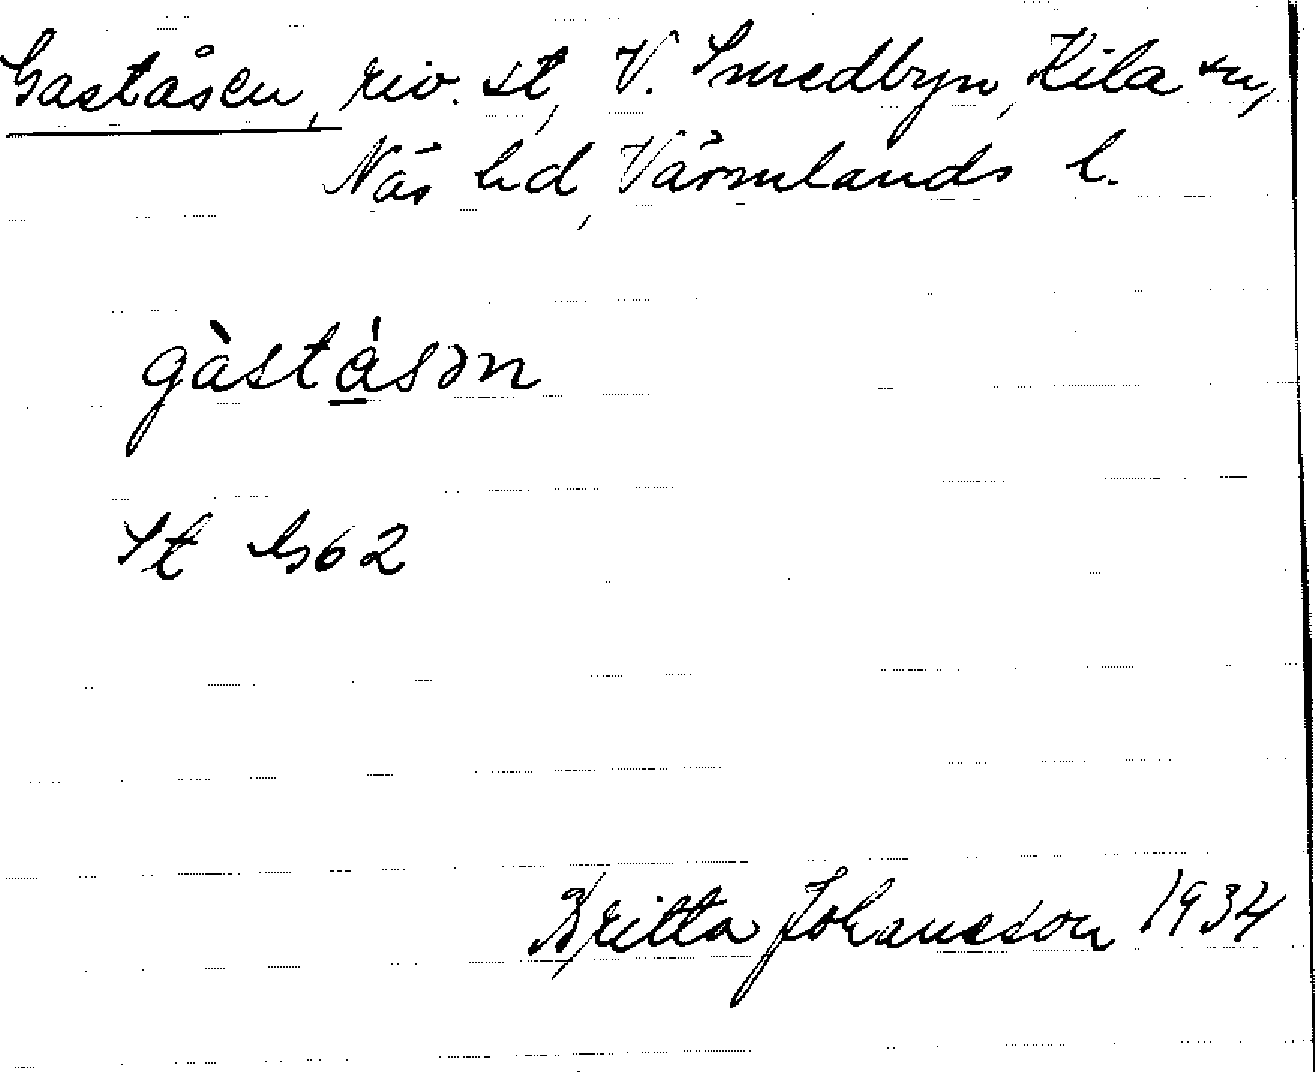 Gaståsen, riv. st, V. Smedbyn, Kila sn,
Näs hd, Värmlands l.
gàstǻ̱sən
St G62
Britta Johansson 1934